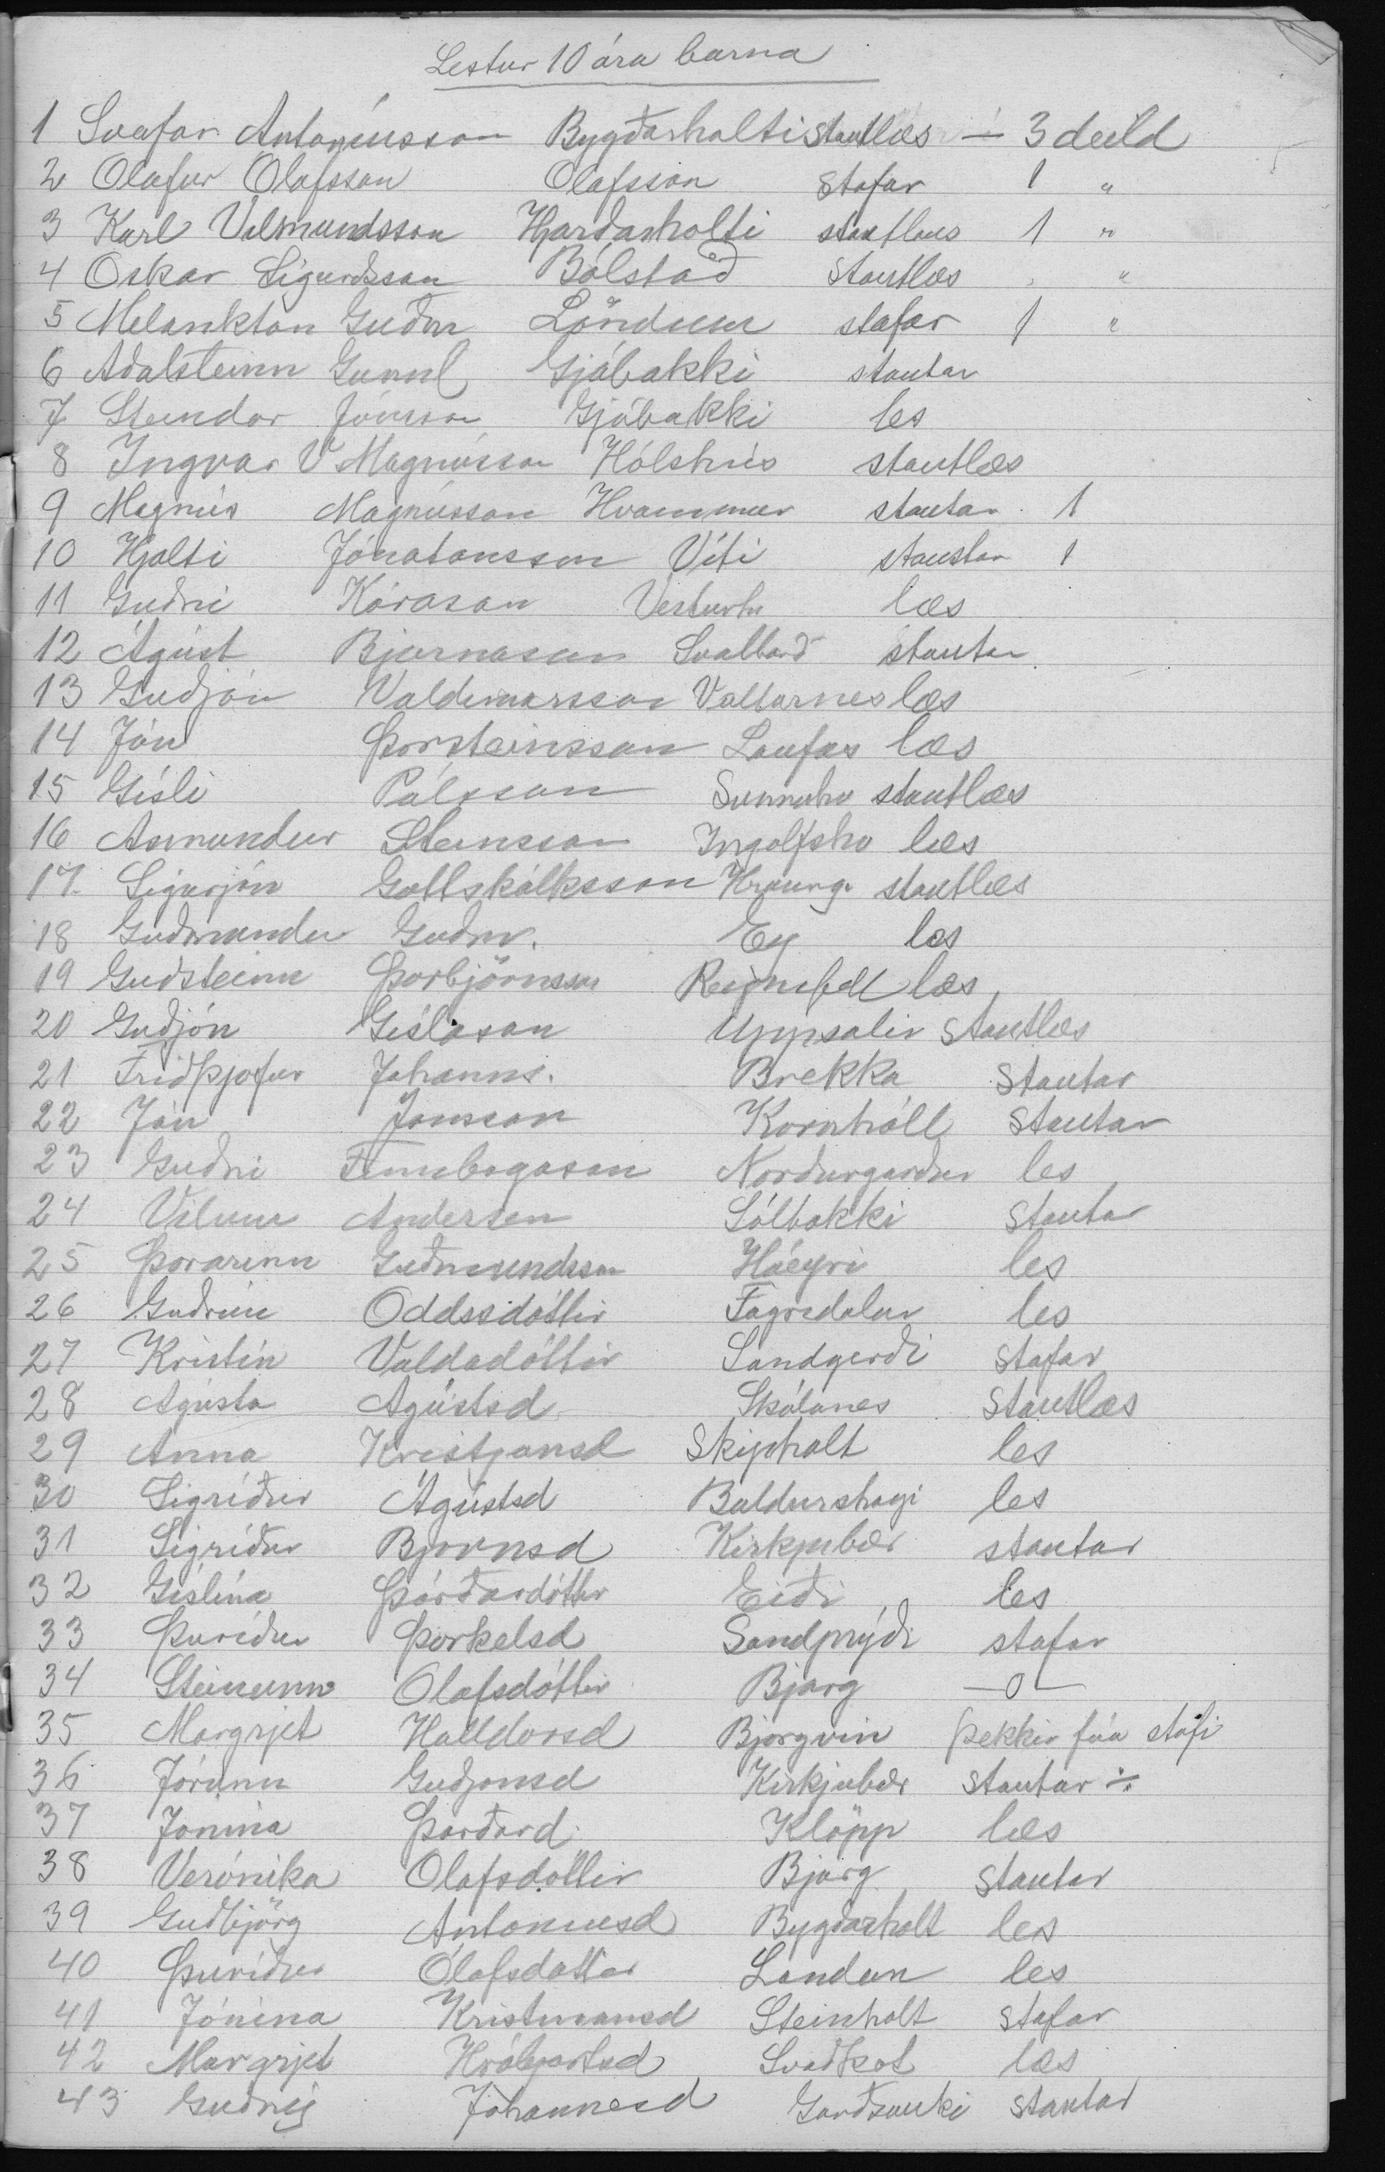 Lestur 10 ára barna
1 Svafar Antoníusson Bygðarholti stautlæs ÷ 3 deild
2 Olafur Ólafsson Olafsson stafar 1 "
3 Karl Vilmundsson Hjarðarholti stautlæs 1 "
4 Óskar Sigurðsson Bólstað stautlæs "
5 Melankton Guðm Löndum stafar 1 "
6 Aðalsteinn Gunnl Gjábakki stautar
7 Steindor Jónsson Gjábakki les
8 Ingvar V Magnússon Hólshús stautlæs
9 Magnús Magnússon Hvammur stautar 1
10 Hjalti Jónatansson Víti stautar 1
11 Guðni Kárason Vesturhr læs
12 Ágúst Bjarnason Svalbarð stautar
13 Guðjón Valdimarsson Vallarnes læs
14 Jón Þorsteinsson Laufás læs
15 Gísli Pálsson Sunnuhv stautlæs
16 Asmundur Steinsson Ingolfshv læs
17. Sigurjón Gottskálksson Hraung stautlæs
18 Guðmundur Guðm. Ey læs
19 Guðsteinn Þorbjörnsson Reynifell læs
20 Guðjón Gíslason Uppsalir stautlæs
21 Friðþjofur Johanns. Brekka stautar
22 Jón Jónsson Kornhóll stautar
23 Guðni Finnbogason Norðurgarður les
24 Vilum Andersen Sólbakki stautar
25 Þorarinn Guðmundsson Háeyri les
26 Guðrún Oddssdóttir Fagridalur les
27 Kristín Valdadóttir Sandgerði stafar
28 Agústa Agústsd Skálanes stautlæs
29 Anna Kristjansd Skipholt les
30 Sigríður Ágústsd Baldurshagi les
31 Sigríður Bjornsd Kirkjubær stautar
32 Gíslína Þórðardóttir Eiði les
33 Þuríður Þorkelsd Sandprýði stafar
34 Steinunn Olafsdóttir Bjarg —0—
35 Margrjet Halldorsd Bjorgvin þekkir fáa stafi
36 Jórunn Guðjonsd Kirkjubær stautar ÷
37 Jónína Þorðard. Klöpp læs
38 Verónika Olafsdóttir Bjarg stautar
39 Guðbjörg Antoniusd Bygðarholt les
40 Þuríður Ólafsdottir London les
41 Jónína Kristmansd Steinholt stafar
42 Margrjet Hróbjartsd Svaðkot læs
43 Guðný Jóhannesd Garðsauki stautar